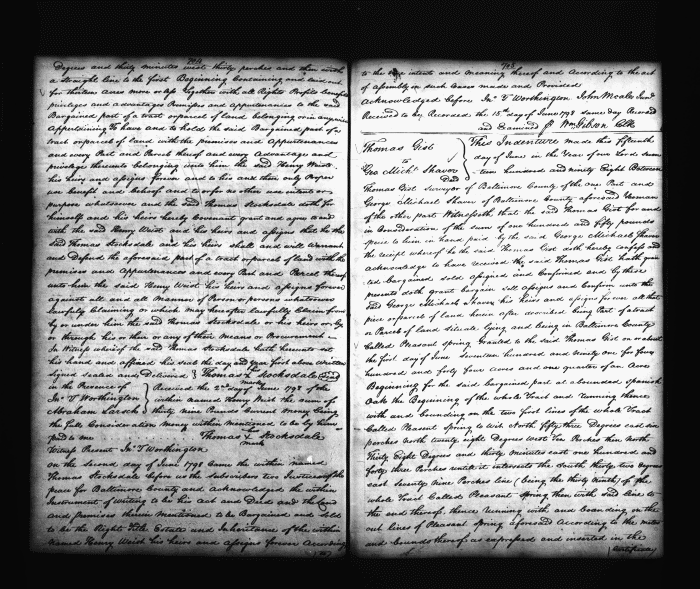 704
Degrees and thirty minutes west thirty perches and then with
a straight line to the first Beginning Containing and laid out
for thirteen Acres more or less Together with all Rights Profits benefits
privileges and advantages Premises and appurtenances to the said
Bargained part of a tract or parcel of land belonging or in anywise
Appertaining To have and to hold the said Bargained part of a
tract or parcel of land with the premises and Appurtenances
and every Part and Parcel thereof and every Advantage and
privilege thereunto belonging unto him the said Henry Wist
his heirs and assigns forever and to his and their only Proper
use benefit and Behoof and to or for no other use intent or
purpose whatsoever and the said Thomas Stocksdale doth for
himself and his heirs hereby Covenant grant and agree to and
with the said Henry Wist and his heirs and assigns that he the
said Thomas Stocksdale and his heirs shall and will Warrant
and Defend the aforesaid part of a tract or parcel of land with the
premises and Appurtenances and every Part and Parcel thereof
unto him the said Henry Wist his heirs and assigns forever
against all and all Manner of Person or persons whatsoever
lawfully Claiming or which may hereafter lawfully Claim from
by or under him the said Thomas Stocksdale or his heirs or by
or through his or their or any of their Means or Procurement
In Witness whereof the said Thomas Stocksdale hath hereunto set
his hand and affixed his seal the day and year first above written
Signed sealed and Delivered Thomas his X mark Stocksdale
in the Presence of
Received the 2nd day of June 1798 of the
Jno T Worthington
within named Henry Wist the sum of
Abraham Larsch
thirty nine Pounds Current Money being
the full Consideration money within mentioned to be by him
paid to me Thomas his X mark Stocksdale
Witness Present Jno T Worthington
On the second day of June 1798 Came the within named
Thomas Stocksdale before us the Subscribers two Justices of the
peace for Baltimore County and acknowledged the within
Instrument of Writing to be his Act and Deed and the Land
and premises therein Mentioned to be Bargained and Sold
to be the Right Title Estate and Inheritance of the within
named Henry Wist his heirs and assigns forever According
705
to the true intent and meaning thereof and According to the act
of assembly in such Cases made and Provided
Acknowledged before Jno T Worthington John Moale
Received to be Recorded the 15th day of June 1798 same day Recorded
and Examined Wm Gibson Clk
Thomas Gist
to
Geo Michl Shaver
Deed
This Indenture made this fifteenth
day of June in the Year of our Lord seven
teen hundred and ninety Eight Between
Thomas Gist Surveyor of Baltimore County of the one Part and
George Michael Shaver of Baltimore County aforesaid Yeoman
of the other part Witnesseth that the said Thomas Gist for and
in Consideration of the sum of one hundred and fifty pounds
specie to him in hand paid by the said George Michael Shaver
the receipt whereof he the said Thomas Gist doth hereby confess and
acknowledge to have received the said Thomas Gist hath gran
ted Bargained sold assigned and Confirmed and by these
presents doth grant bargain sell assign and Confirm unto the
said George Michael Shaver his Heirs and assigns for ever all that
piece or parcel of land herein after described being Part of a tract
or Parcel of land situate lying and being in Baltimore County
Called Pleasant spring Granted to the said Thomas Gist on or about
the first day of June seventeen hundred and ninety one for four
hundred and forty four Acres and one quarter of an Acre
Beginning for the said bargained part at a bounded spanish
Oak the Beginning of the whole Tract and running thence
with and bounding on the two first lines of the whole Tract
Called Pleasant spring to Wit North fifty three Degrees east six
perches North twenty eight Degrees West Ten Perches then North
Thirty Eight Degrees and thirty minutes east one hundred and
forty three Perches until it intersects the South thirty two degrees
east seventy nine Perches line (being the thirty ninth) of the
whole Tract Called Pleasant Spring then with said line to
the end thereof thence running with and bounding on the
out lines of Pleasant Spring aforesaid According to the metes
and bounds thereof as expressed and inserted in the
Certificate